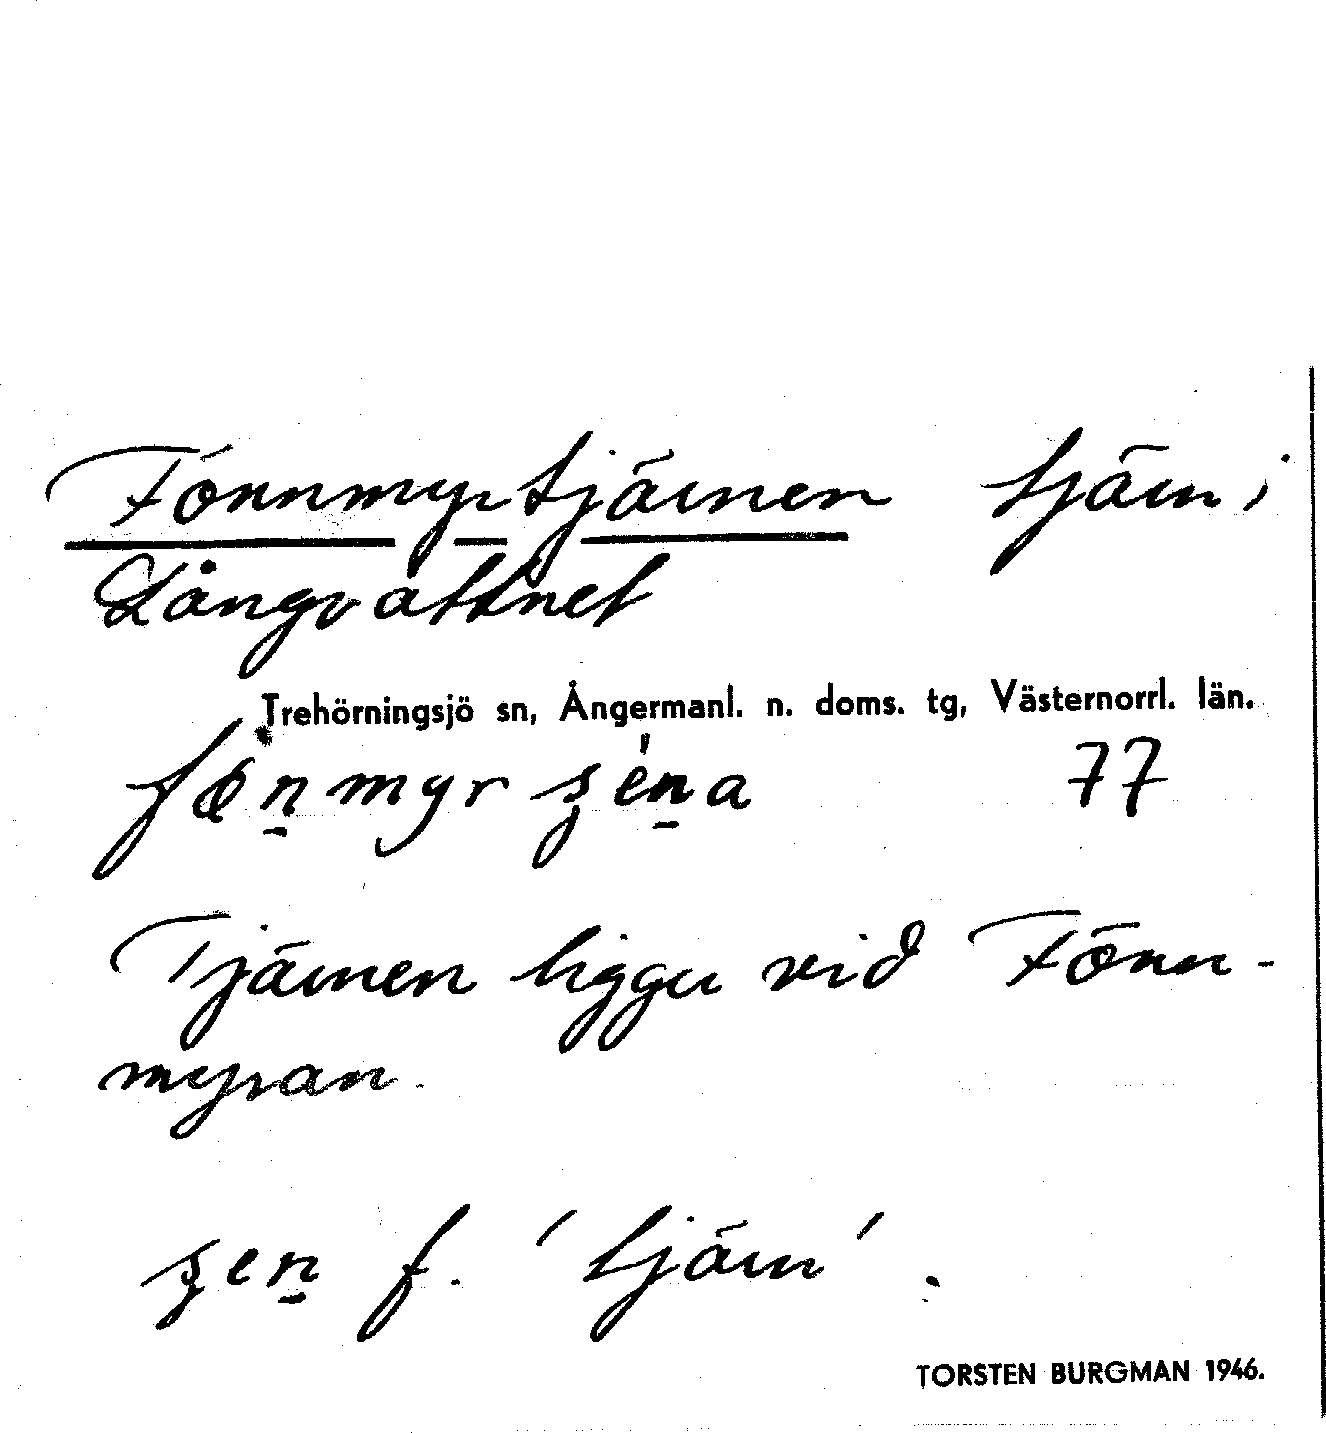 Fönnmyrtjärnen tjärn i
Långvattnet
Trehörningsjö sn, Ångermanl. n. doms. tg, Västernorrl. län.
77
Tjärnen ligger vid Fönn-
myran.
f. 'tjärn'.
TORSTEN BURGMAN 1946.